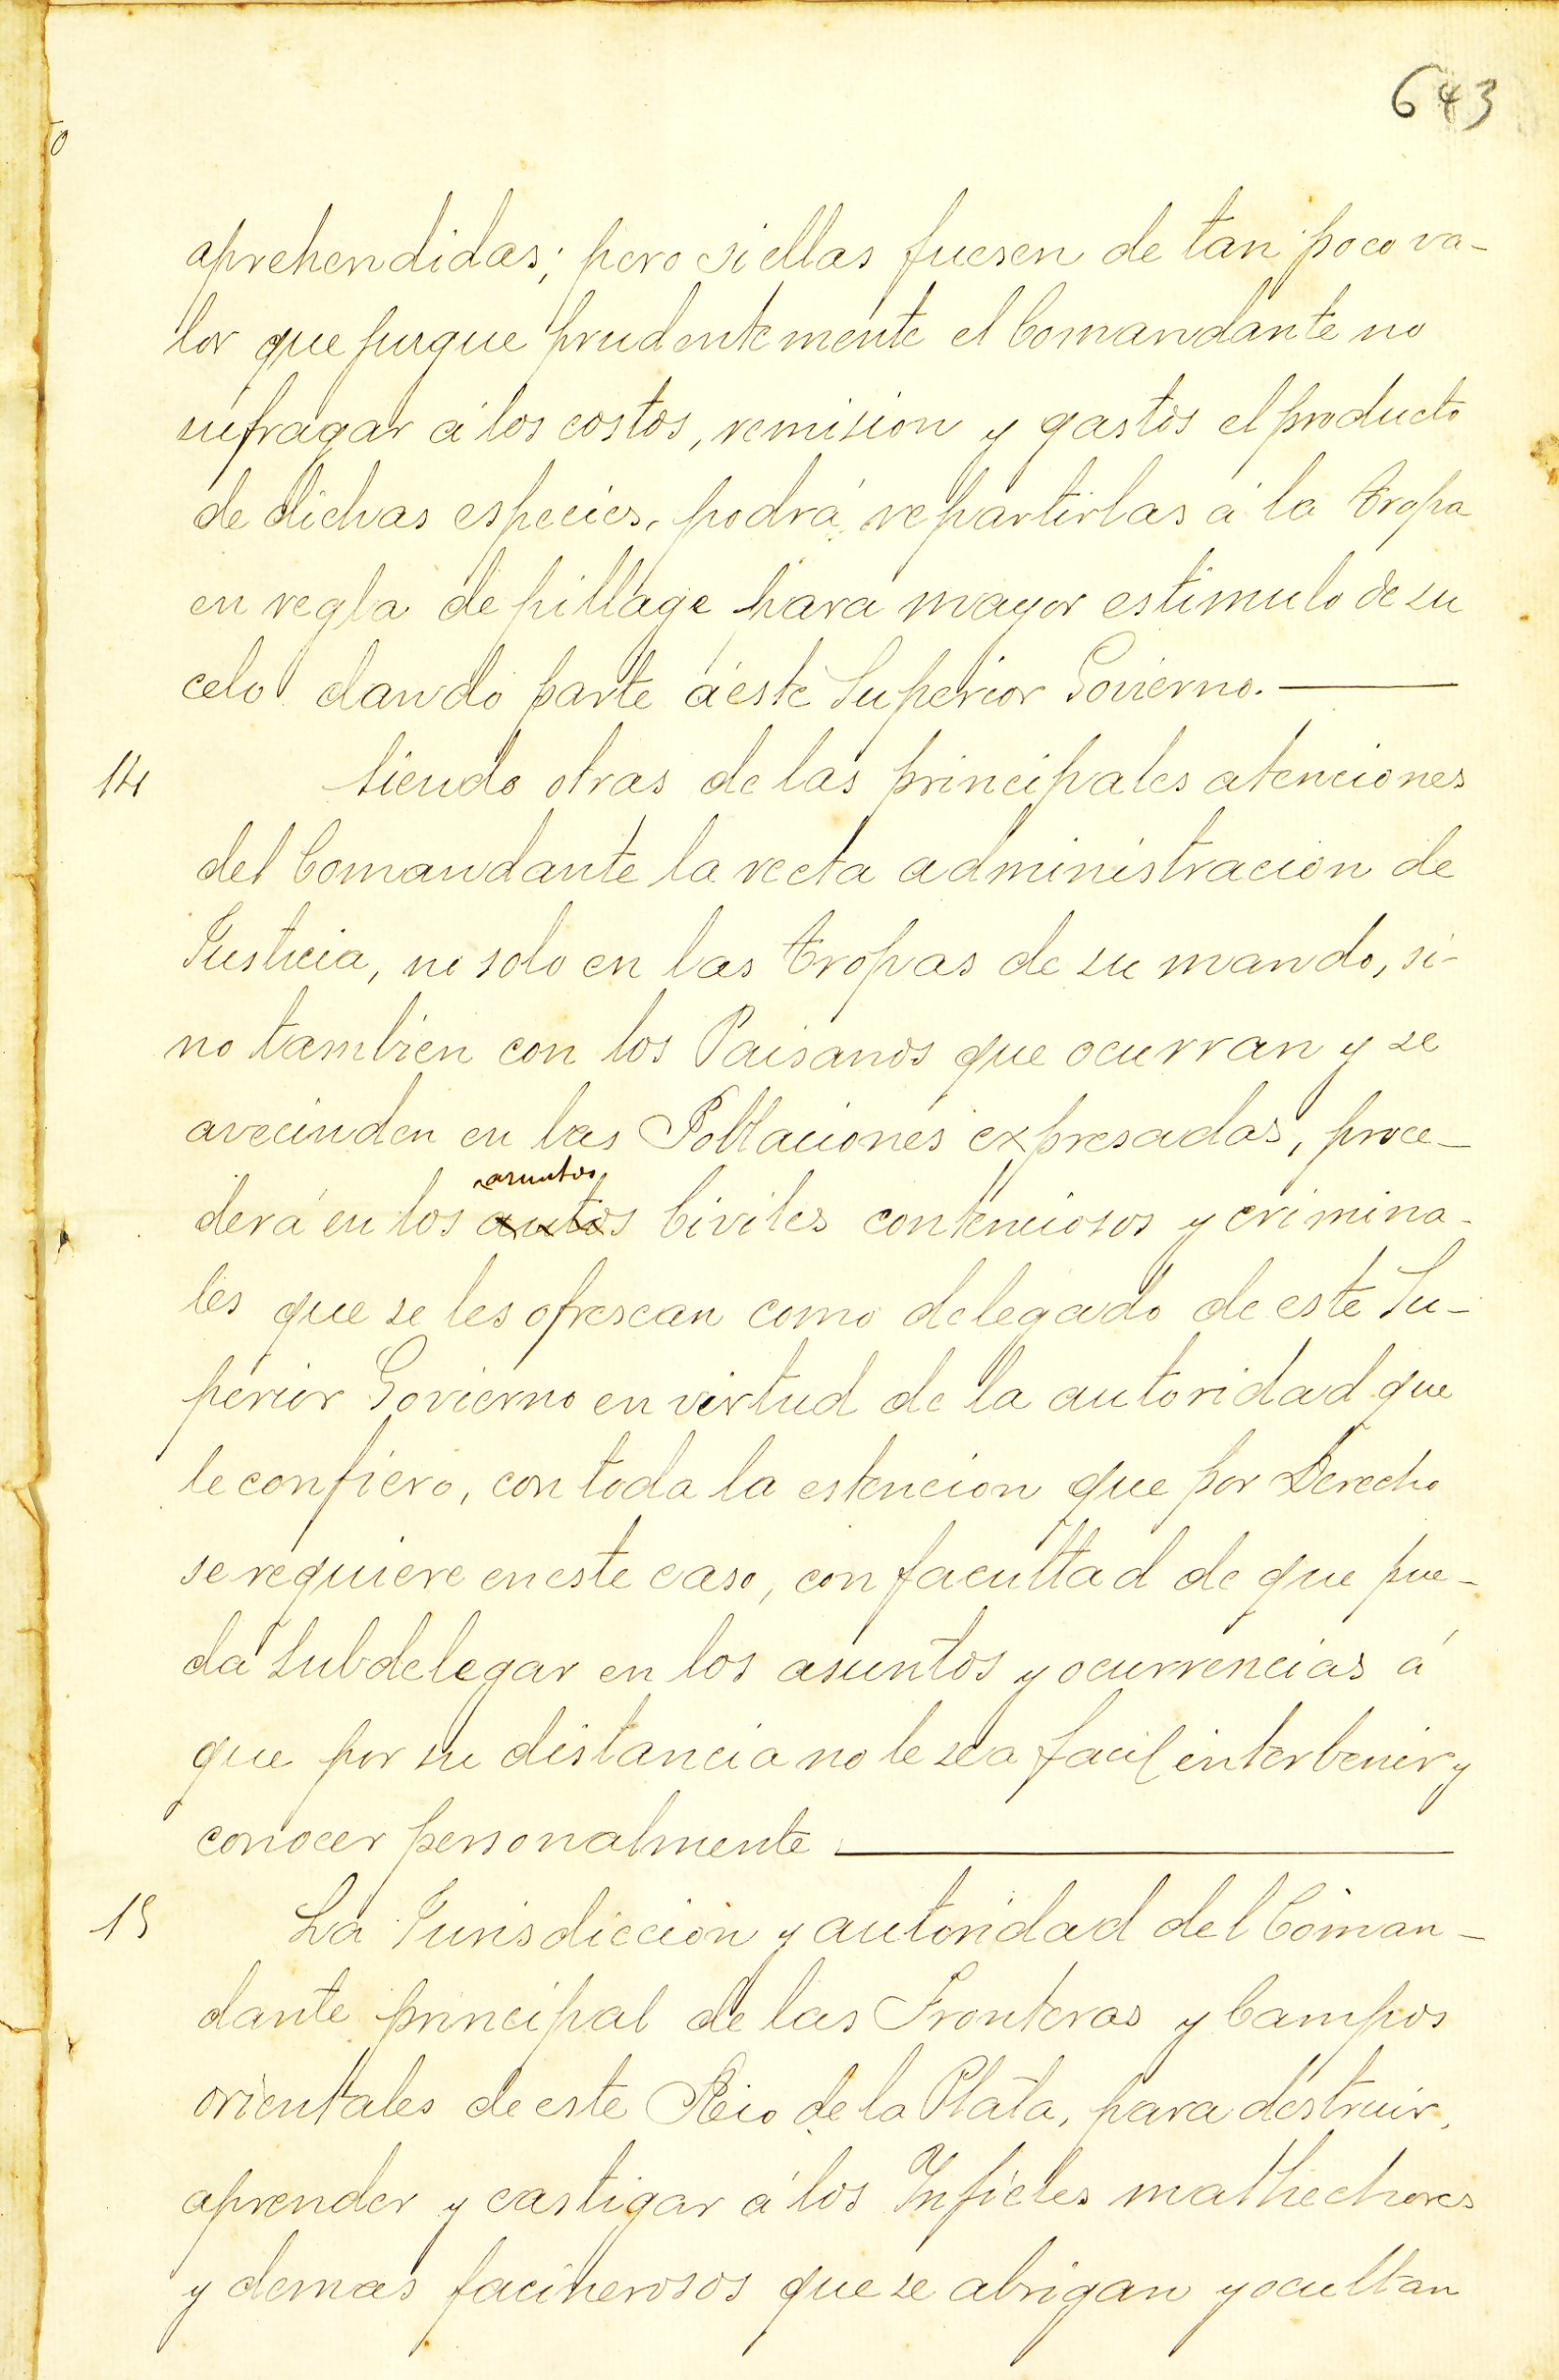 643
aprehendidas; pero si ellas fuesen de tan poco va-
lor que jusgue prudentemente el Comandante no
sufragar á los costos, remision y gastos el producto
de dichas especies, podrá repartirlas á la tropa
en regla de pillage para mayor estimulo de su
celo dando parte á este Superior Govierno.
14 Siendo otras de las principales atenciones
del Comandante la recta administracion de
Justicia, no solo en las tropas de su mando, si-
no tambien con los Paisanos que ocurran y se
avecinden en las Poblaciones expresadas, proce-
asuntos
derá en los autos Civiles contenciosos y crimina-
les que se les ofrescan como delegado de este Su-
perior Govierno en virtud de la autoridad que
le confiero, con toda la estencion que por Derecho
se requiere en este caso, con facultad de que pue-
da Subdelegar en los asuntos y ocurrencias á
que por su distancia no le sea facil interbenir y
conocer personalmente
15 La Jurisdiccion y autoridad del Coman-
dante principal de las Fronteras y Campos
orientales de este Rio de la Plata, para destruir,
aprender y castigar á los Infieles malhechores
y demas facinerosos que se abrigan y ocultan